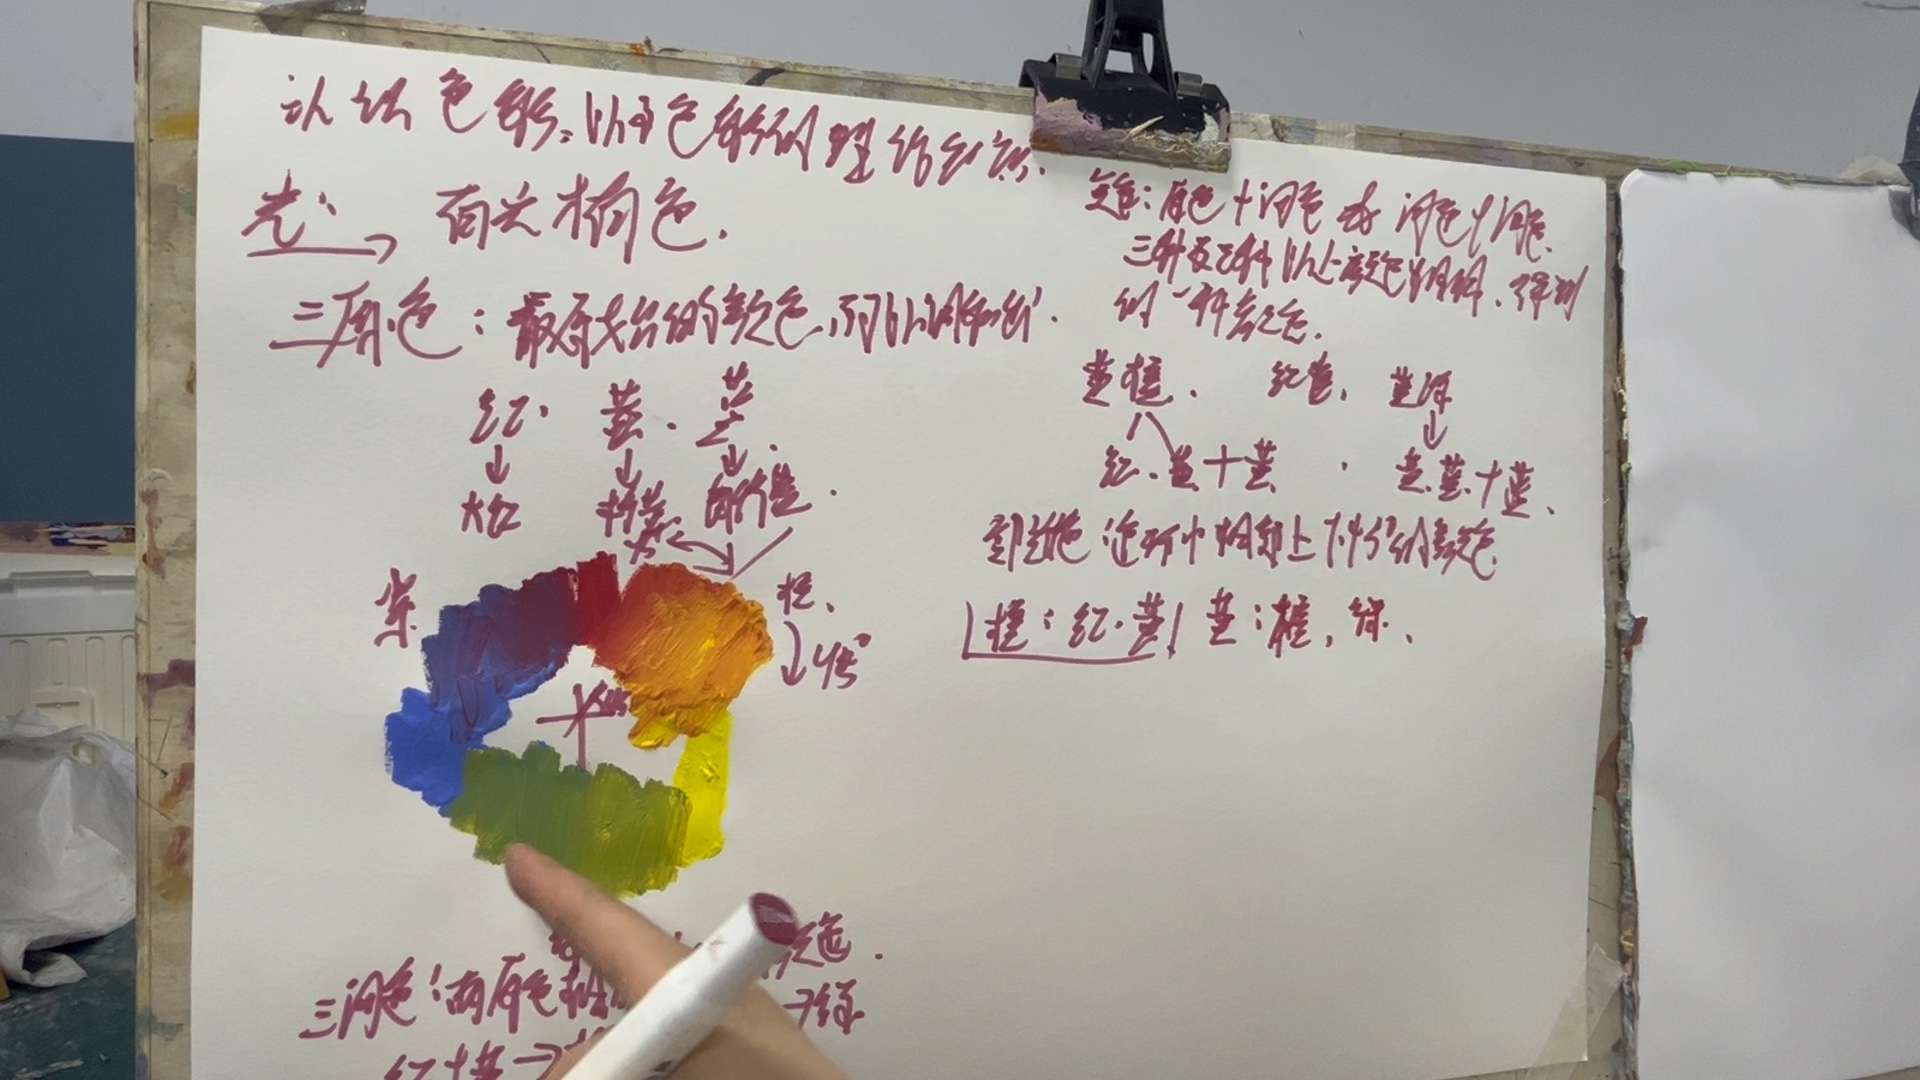 认识色彩:以及色彩的理论知识.
光: 有光才有色.
三原色:最原始的颜色,不可以调和出.
红. 黄. 蓝.
大红 柠黄
紫 橙、
三间色:两原色 绿
红+黄→
复色:原色+间色 或 间色+间色.
三种及三种以上颜色相调,得到
的一种颜色.
黄橙. 红 黄绿
红.黄+黄 . 黄.蓝+蓝.
邻近色:色环中相邻上下的颜色
橙:红.黄 黄:橙,绿.